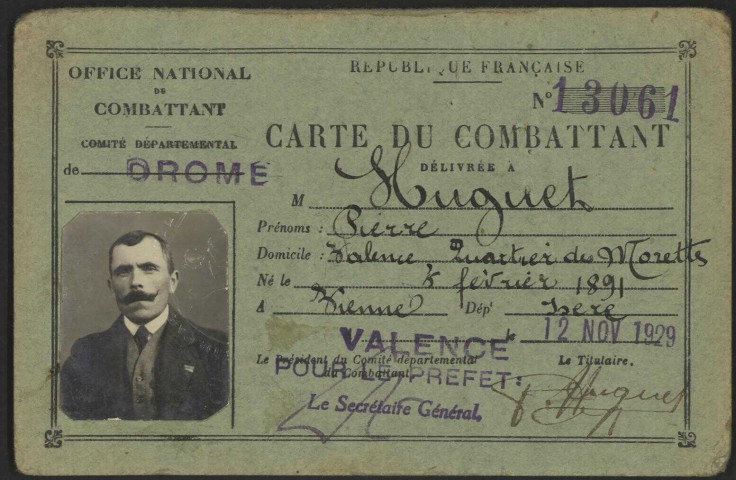 OFFICE NATIONAL
DU
COMBATTANT
COMITÉ DÉPARTEMENTAL
de DROME
RÉPUBLIQUE FRANÇAISE
N° 13061
CARTE DU COMBATTANT
DÉLIVRÉE A
M Huguet
Prénoms : Pierre
Domicile : Valence, Quartier des Morettes
Né le février 1891
A Vienne Dépt Isère
VALENCE le 12 NOV 1929
Le Président du Comité départemental
du Combattant,
Le Titulaire,
POUR LE PREFET:
Le Secrétaire Général,
P. Huguet